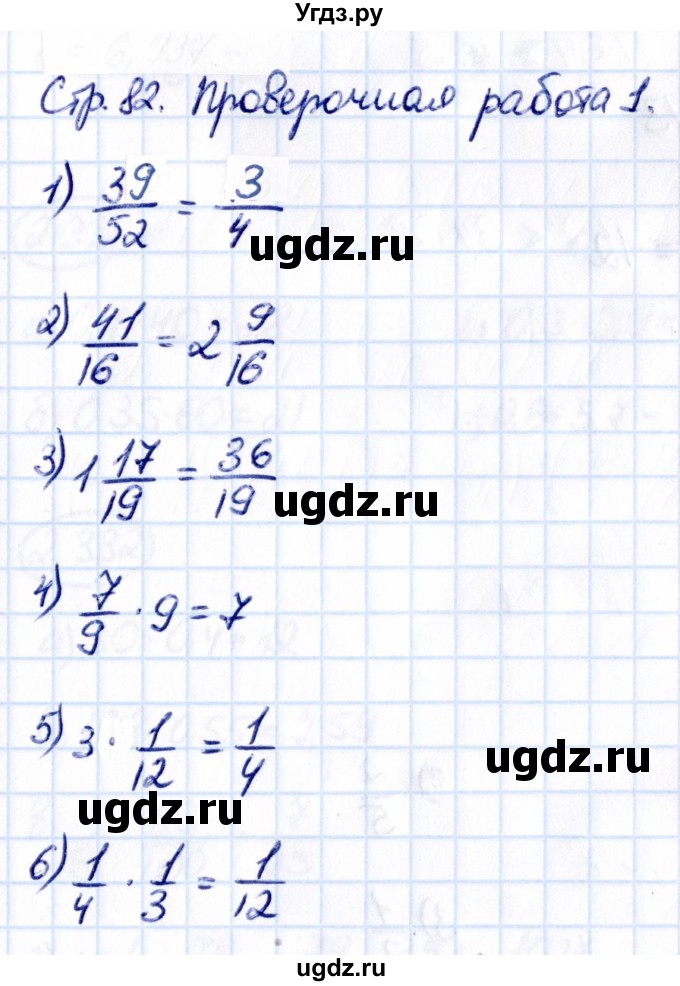 Угдз.ру
Стр. 82. Проверочная работа 1.
1) 39/52 = 3/4
ugdz.ru
2) 41/16 = 2 9/16
3) 1 17/19 = 36/19
ugdz.ru
4) 7/9 · 9 = 7
5) 3 · 1/12 = 1/4
ugdz.ru
ugdz.ru
6) 1/4 · 1/3 = 1/12
ugdz.ru